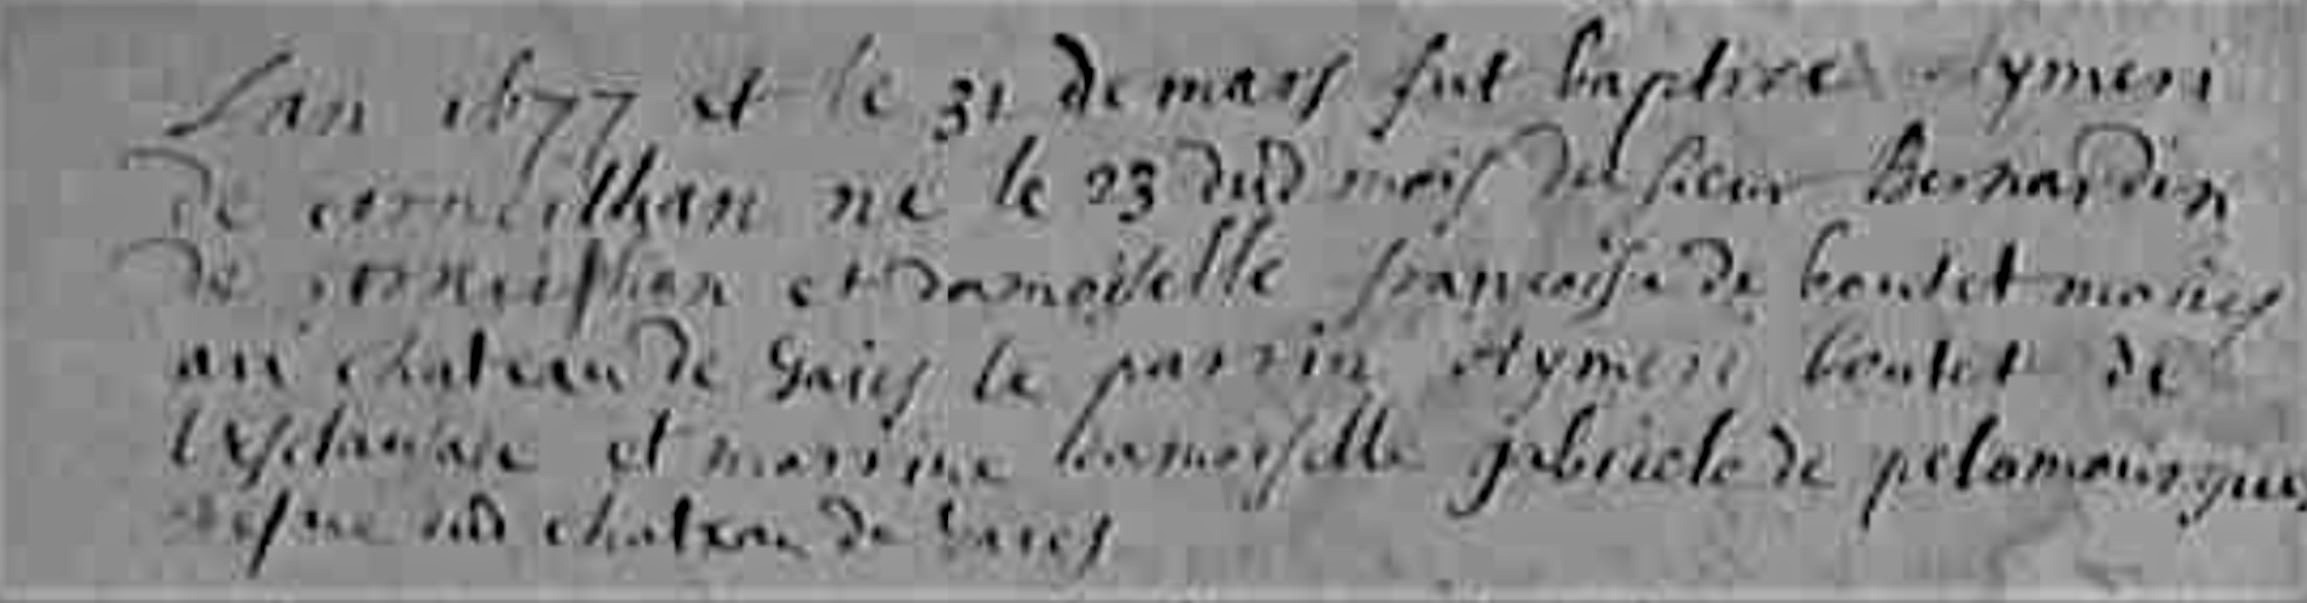 Lan 1677 et le 31 de mars fut baptire Aymeri
de corneilhan ne le 23 dud mois du sieur Bernardin
de corneilhan et damoiselle françoise de boutet maries
au chateau de le parrin Aymeri boutet de
et marrine damoiselle gabriele de pelamourgue
aud chateau de